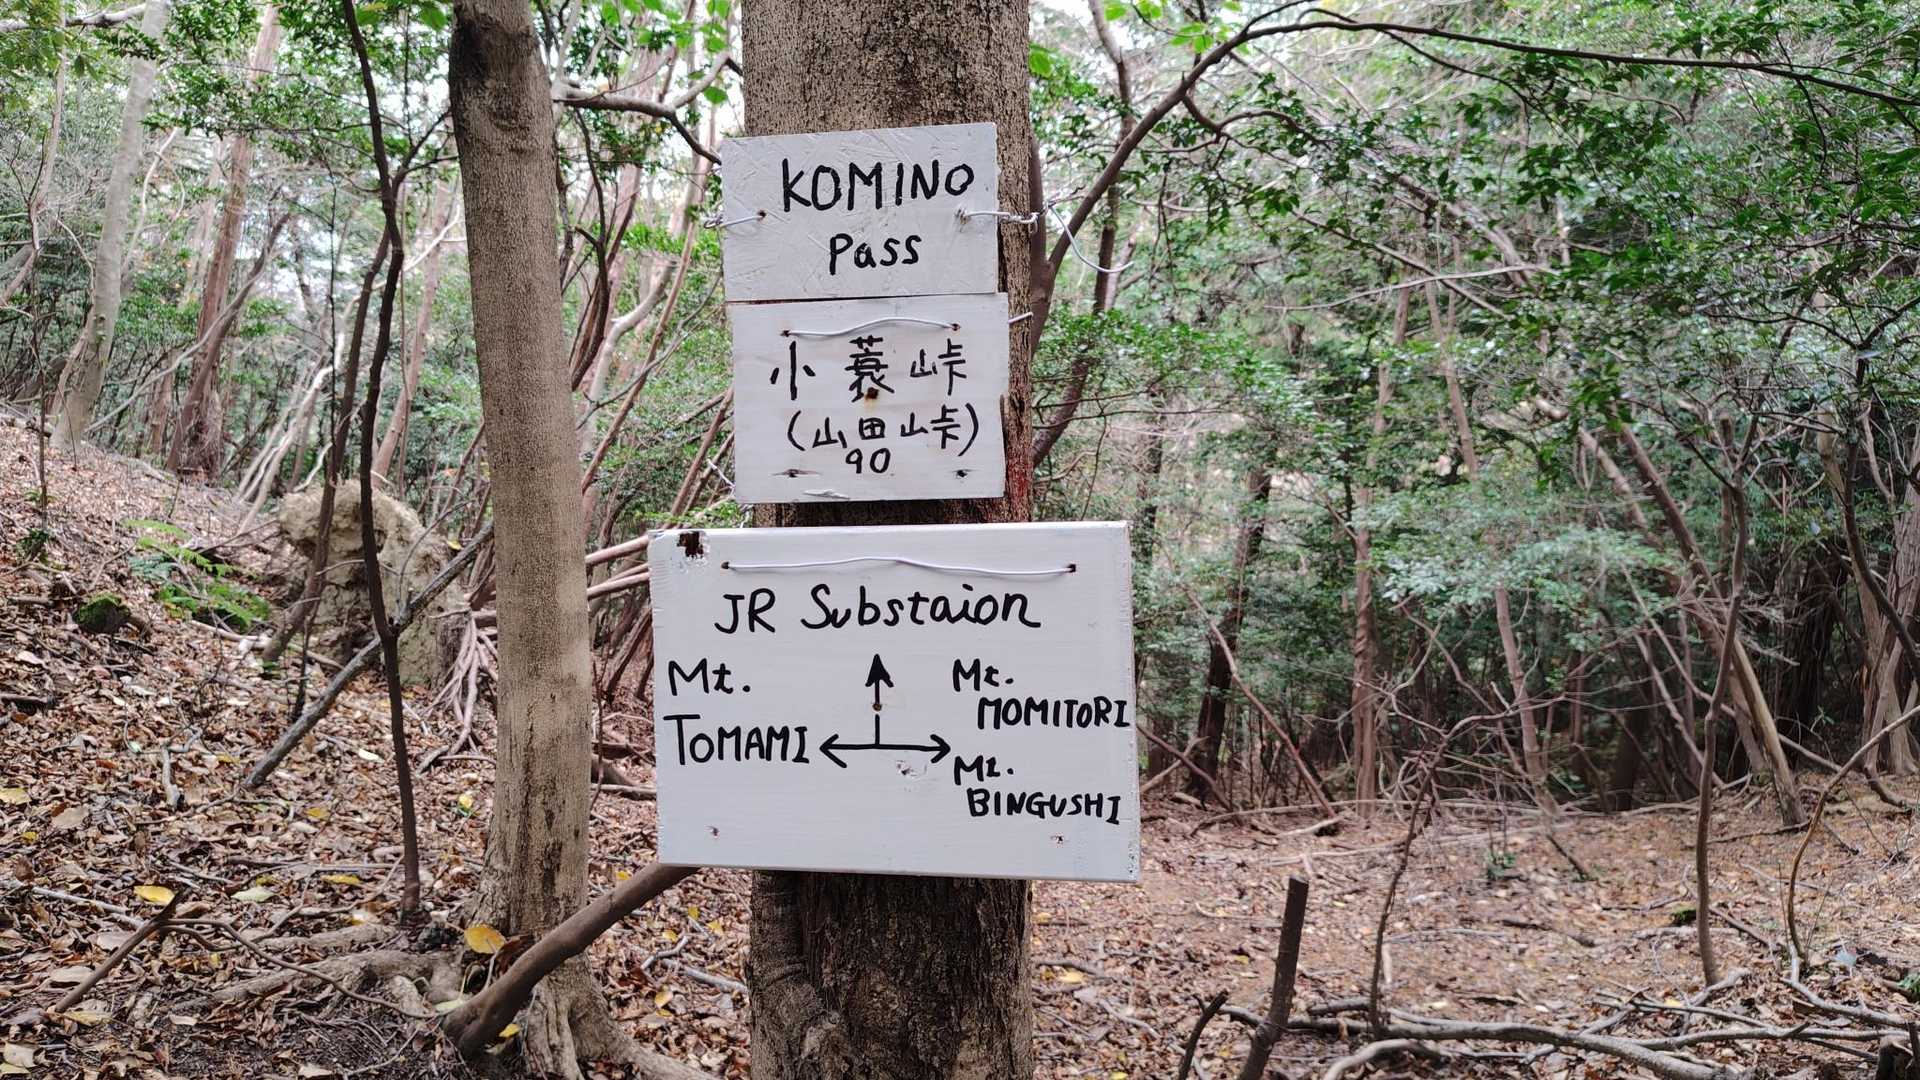 KOMINO
Pass
小蓑峠
(山田峠)
90
JR Substaion
Mt.
TOMAMI
Mt.
MOMITORI
Mt.
BINGUSHI